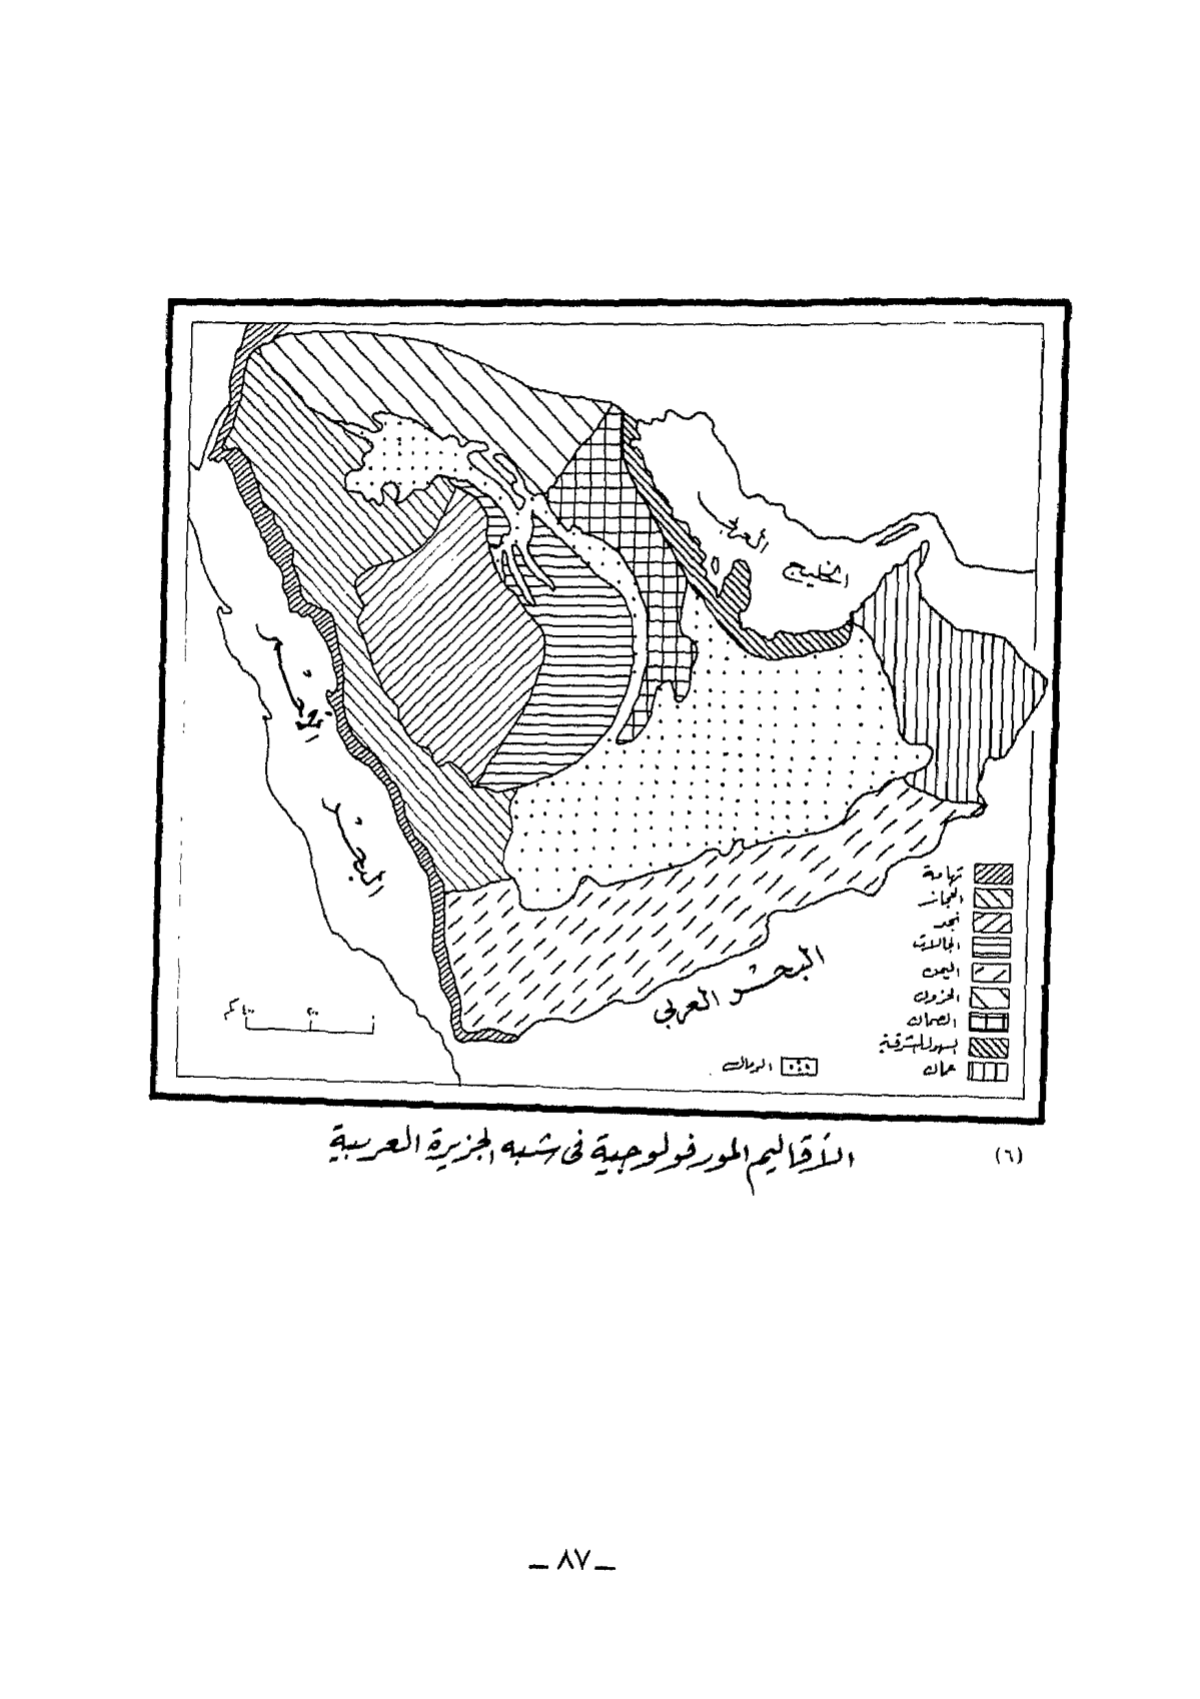 الخليج العربي
البحر الأحمر
البحر العربي
تهامة
الحجاز
نجد
الجالات
اليمن
الحزون
الصمان
السهول الشرقية
عمان
الرمال
٤٠٠ كم ٢٠٠ ٠
(٦) الأقاليم المورفولوجية فى شبه الجزيرة العربية
ـ ٨٧ ـ